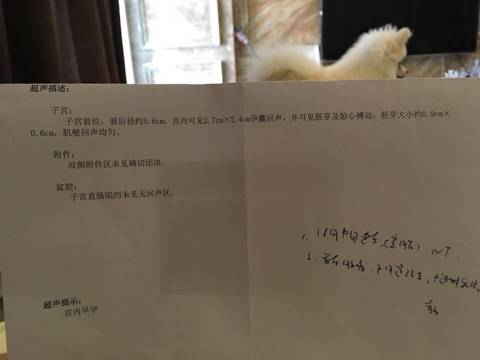 超声描述:
子宫:
子宫前位，前后径约5.6cm，宫内可见2.7cm×2.4cm孕囊回声，并可见胚芽及胎心搏动，胚芽大小约0.9cm×
0.6cm，肌壁回声均匀。
附件:
双侧附件区未见确切团块。
盆腔:
子宫直肠陷凹未见无回声区。
1.
2.
超声提示:
宫内早孕